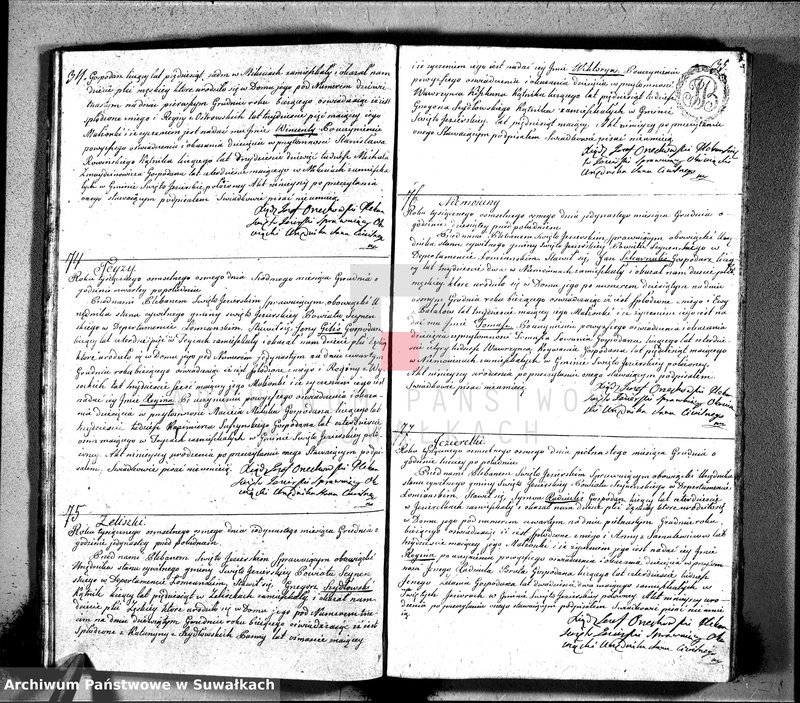 34. Gospodarz liczący lat pięćdziesiąt siedm w zamieszkały i okazał nam
dziecie płci męskiey które urodziło się w Domu jego pod Numerem
na dniu pierwszym Grudnia roku bieżącego oświadczaiąc iż iest
spłodzone z niego i Reginy z lat trzydzieści pięć maiącey jego
Małżonki i że życzeniem jego iest nadać mu Imie Wincenty Po uczynieniu
powyższego oświadczenia i okazania dziecięcia w przytomności Stanisława
Kątnika liczącego lat trzydzieści dziewięć tudzież Michała
Gospodarza lat czterdzieści maiącego w zamieszka-
łych w Gminie Święto Jezierskiey położoney. Akt ninieyszy po przeczytaniu
onego stawaiącym podpisałem Swiadkowie pisać nieumieią
Xiądz Jozef Orzechowski Pleban
Święto Jezierski Sprawuiący Obo-
wiązki Urzędnika Stanu Cywilnego
74 Teyzy.
Roku tysiącznego osmsetnego osmego dnia Siodmego miesiąca Grudnia o
godzinie czwartey po południu.
Przed nami Plebanem Święto Jezierskim Sprawuiącym obowiązki U-
rzędnika stanu cywilnego gminy Święto Jezierskiey Powiatu Seyneń-
skiego w Departamencie Łomżyńskim Stawił się Jerzy Giłis Gospodarz
liczący lat czterdzieści w Teyzach zamieszkały i okazał nam dziecie płci żeńskiey
które urodziło się w Domu jego pod Numerem jedynastym na dniu czwartym
Grudnia roku bieżącego oświadczaiąc iż iest spłodzone z niego i Reginy z
lat trzydzieści sześć maiącey jego Małżonki i że życzeniem jego iest
nadać iey Imie Regina Po uczynieniu powyższego oświadczenia i okaza-
nia dziecięcia w przytomności Macieia Matula Gospodarza liczącego lat
trzydzieści tudzież Kazimierza Gospodarza lat czterdzieści
osm maiącego w Teyzach zamieszkałych w Gminie Święto Jezierskiey poło-
żoney. Akt ninieyszy urodzenia po przeczytaniu onego Stawaiącym podpi-
sałem. Swiadkowie pisać nieumieią.
Xiądz Jozef Orzechowski Pleban
Święto Jezierski Sprawuiący Obo-
wiązki Urzędnika Stanu Cywilnego
75 Zeliszki.
Roku tysiącznego osmsetnego osmego dnia Jedynastego miesiąca Grudnia o
godzinie jedynastey przed południem.
Przed nami Plebanem Święto Jezierskim Sprawuiącym obowiązki
Urzędnika stanu cywilnego gminy Święto Jezierskiey Powiatu Seyneń-
skiego w Departamencie Łomżyńskim Stawił się Grzegorz Szydłowski
Kątnik liczący lat pięćdziesiąt w zamieszkały i okazał nam
dziecie płci żeńskiey które urodziło się w Domu jego pod Numerem
na dniu dziewiątym Grudnia roku bieżącego oświadczaiąc iż iest
Spłodzone z Katarzyny z Szydłowskich Panny lat maiącey
35
i iż życzeniem iego iest nadać iey Imie Wiktorya. Po uczynieniu
powyższego oświadczenia i okazania dziecięcia w przytomności
Wawrzyńca Kątnika liczącego lat pięćdziesiąt tudzież
Grzegorza Szydłowskiego Kątnika zamieszkałych w Gminie
Święto Jezierskiey lat pięćdziesiąt maiący. Akt ninieyszy po przeczytaniu
onego Stawaiącym podpisałem Swiadkowie pisać nieumieią.
Xiądz Jozef Orzechowski Pleban Świę-
to Jezierski Sprawuiący Obowiązki
Urzędnika Stanu Cywilnego
76 Niemowiny
Roku tysiącznego osmsetnego osmego dnia jedynastego miesiąca Grudnia o
godzinie dziesiątey przed południem.
Przed nami Plebanem Święto Jezierskim Sprawuiącym obowiązki Urzę-
dnika stanu cywilnego gminy Święto Jezierskiey Powiatu Seyneńskiego w
Departamencie Łomżyńskim Stawił się Jan Gospodarz liczą-
cy lat trzydzieści dwa w Niemowinach zamieszkały i okazał nam dziecie płci
męskiey które urodziło się w Domu jego pod numerem dziesiątym na dniu
osmym Grudnia roku bieżącego oświadczaiąc iż iest spłodzone z niego i Ewy
z lat trzydzieści maiącey jego Małżonki i że życzeniem iego iest na-
dać mu Imie Tomasz. Po uczynieniu powyższego oświadczenia i okazania
dziecięcia w przytomności Tomasza Gospodarza liczącego lat czterdzie-
ści cztery tudzież Wawrzyńca Gospodarza lat pięćdziesiąt maiącego
w Niemowinach zamieszkałych w Gminie Święto Jezierskiey położoney.
Akt ninieyszy urodzenia po przeczytaniu onego Stawaiącym podpisałem.
Swiadkowie pisać nieumieią.
Xiądz Jozef Orzechowski Pleban
Święto Jezierski Sprawuiący Obowią-
zki Urzędnika Stanu Cywilnego
77 Jeziorelki.
Roku tysiącznego osmsetnego osmego dnia piętnastego miesiąca Grudnia o
godzinie trzeciey po południu.
Przed nami Plebanem Święto Jezierskim Sprawuiącym obowiązki Urzędnika
stanu cywilnego gminy Święto Jezierskiey Powiatu Seyneńskiego w Departamencie
Łomżyńskim, Stawił się Szymon Gospodarz liczący lat czterdzieści
w Jeziorelkach zamieszkały i okazał nam dziecie płci żeńskiey które urodziło się
w Domu jego pod numerem czwartym na dniu Grudnia roku
bieżącego oświadczaiąc iż iest spłodzone z niego i Anny z lat
trzydzieści maiącey jego Małżonki i że życzeniem jego iest nadać iey Imie
Regina po uczynieniu powyższego oświadczenia i okazania dziecięcia w przytom-
ności Jerzego Brata Gospodarza liczącego lat czterdzieści tudzież
Jerzego Gospodarza lat dwadzieścia dwa maiącego zamieszkałych w
Świętym Jeziorach w Gminie Święto Jezierskiey położoney. Akt ninieyszy uro-
dzenia po przeczytaniu onego Stawaiącym podpisałem Swiadkowie pisać nieumie-
ią.
Xiądz Jozef Orzechowski Pleban
Święto Jezierski Sprawuiący Obo-
wiązki Urzędnika Stanu Cywilnego
PAŃSTWO
AŁKACH
Archiwum Państwowe w Suwałkach